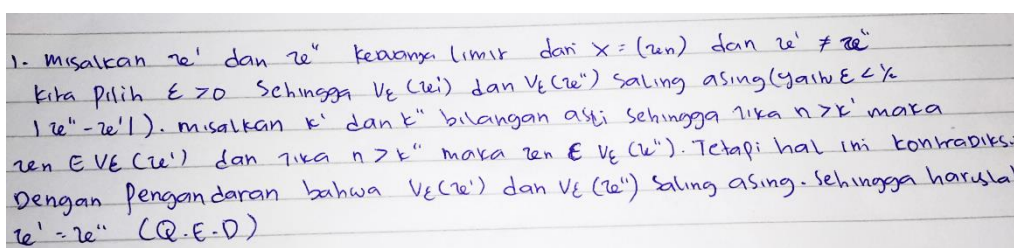 1. Misalkan x' dan x" keduanya limit dari X = (xn) dan x' ≠ x"
kita pilih ε > 0 Sehingga Vε (x') dan Vε (x") saling asing (yaitu ε < ½
|x" - x'|). misalkan k' dan k" bilangan asli sehingga jika n > k' maka
xn ∈ Vε (x') dan jika n > k" maka xn ∈ Vε (x"). Tetapi hal ini kontradiks
Dengan Pengandaran bahwa Vε (x') dan Vε (x") saling asing. Sehingga harusla
x' = x" (Q.E.D)